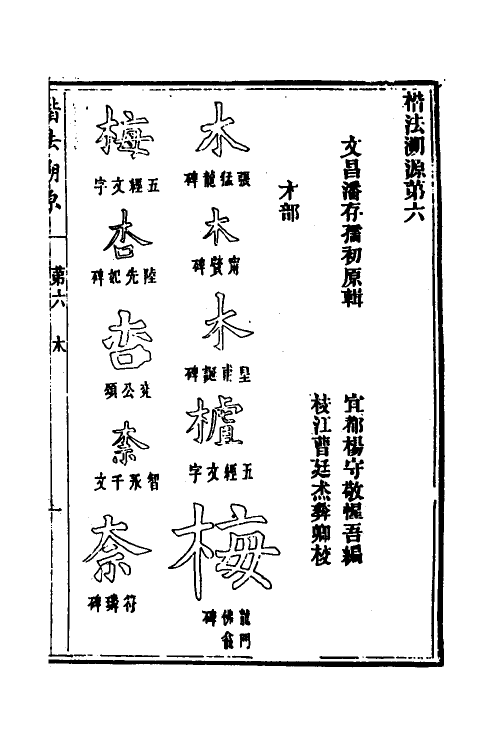 楷法溯源第六
文昌潘存孺初原輯
宜都楊守敬惺吾編
枝江曹廷杰彝卿校
才部
木
張猛龍碑
木
甯贙碑
木
皇甫誕碑
樝
五經文字
梅
龍門佛龕碑
梅
五經文字
杏
陸先妃碑
杏
兖公頌
柰
智永千文
柰
符璘碑
楷法溯原
第六
木
一